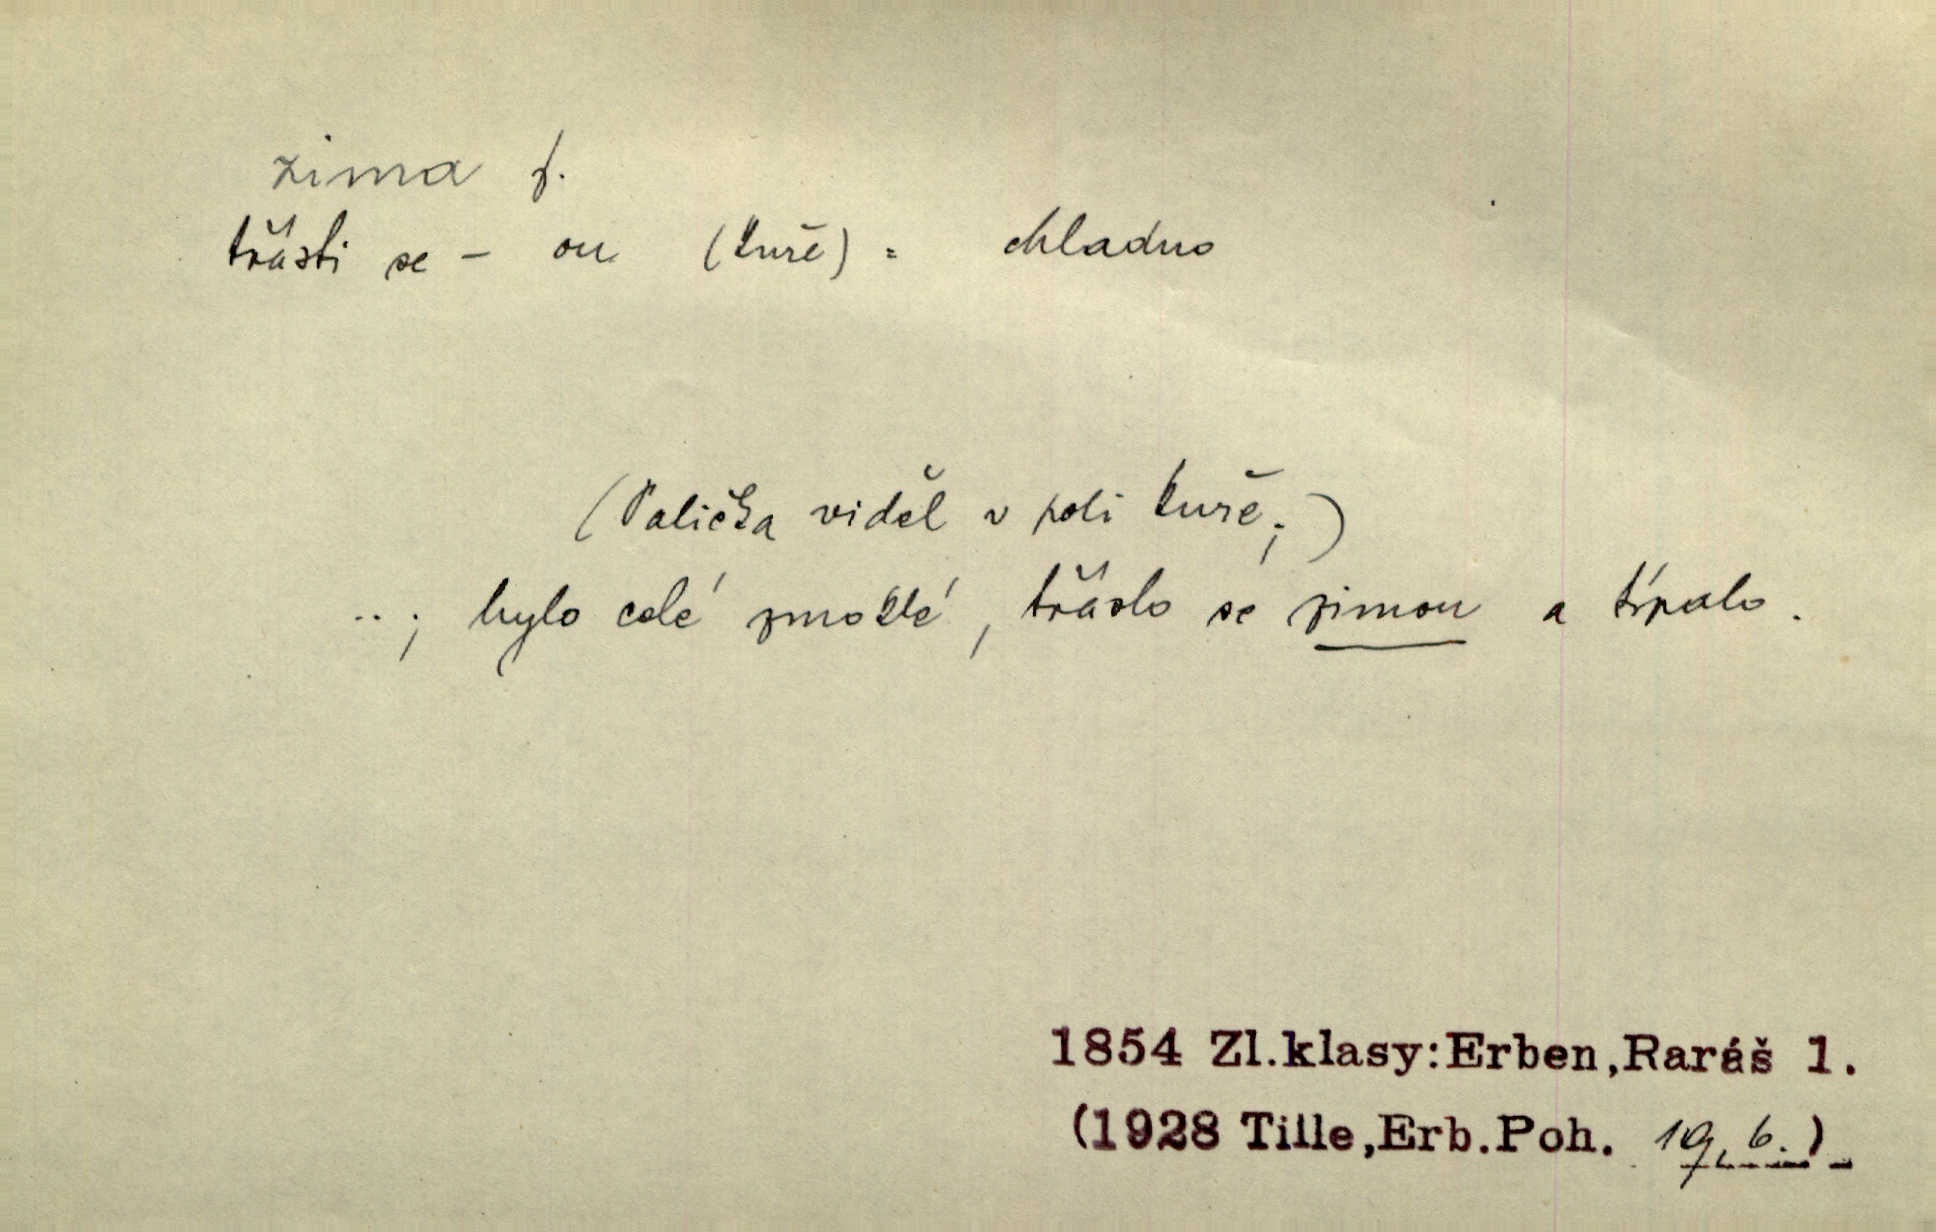 zima f.
třásti se - ou (kuře) = chladno
(Palička viděl v poli kuře;)
..; bylo celé zmoklé, třáslo se zimou a típalo.
1854 Zl.klasy:Erben,Raráš 1.
(1928 Tille,Erb.Poh. 19, 6.)